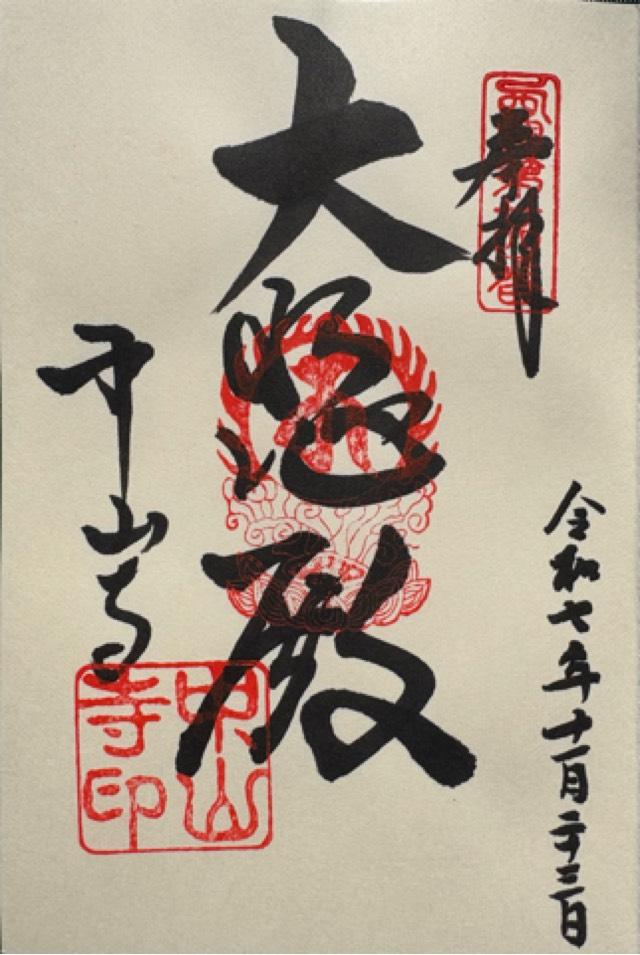 奉拝
令和七年十一月二十三日
大悲殿
中山寺
中山寺印